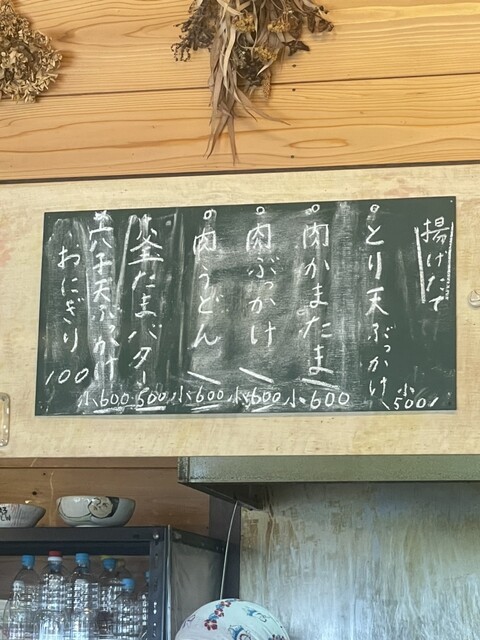 揚げたて
とり天ぶっかけ 小500
肉かまたま 小600
肉ぶっかけ 小600
肉うどん 小600
釜たまバター 500
天ぶっかけ 小600
おにぎり 100